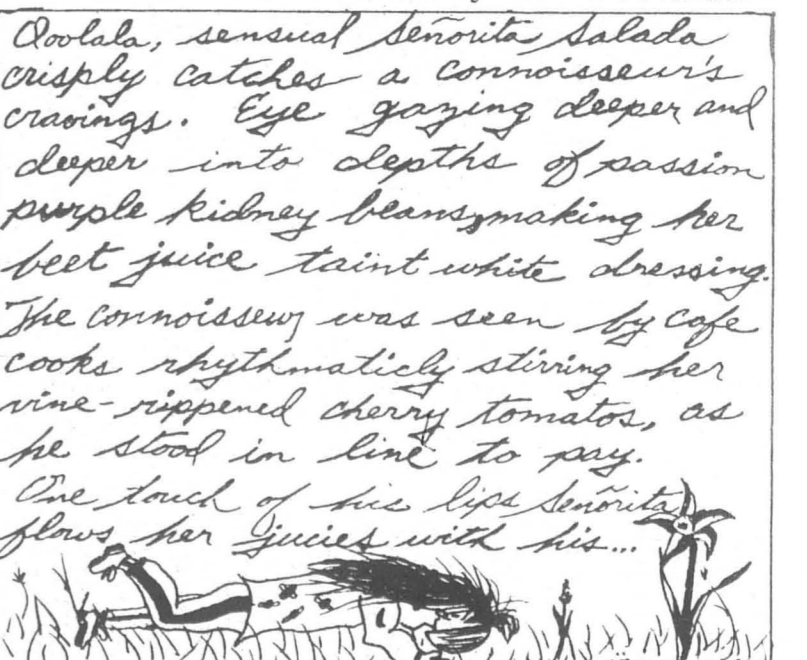 Ooolala, sensual Señorita Salada
crisply catches a connoisseur's
cravings. Eye gazing deeper and
deeper into depths of passion
purple kidney beans, making her
beet juice taint white dressing.
The connoisseur, was seen by cafe
cooks rhythmaticly stirring her
vine-rippened cherry tomatos, as
he stood in line to pay.
One touch of his lips Señorita
flows her jucies with his...